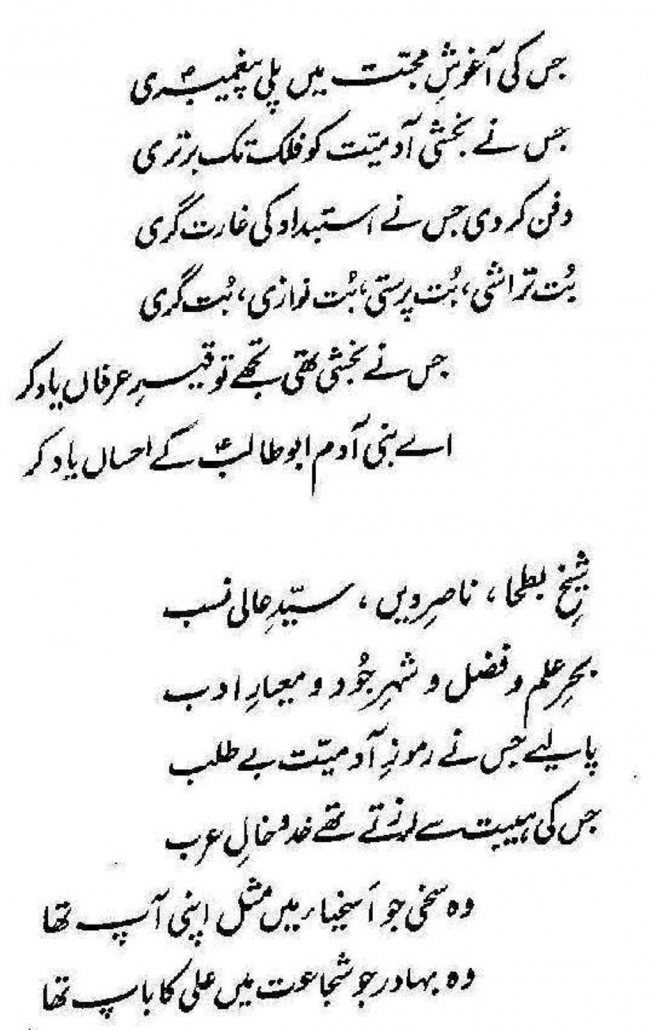 جس کی آغوشِ محبّت میں پلی پیغمبری
جس نے بخشی آدمیّت کو فلک تک برتری
دفن کر دی جس نے استبداد کی غارت گری
بُت تراشی، بُت پرستی، بُت نوازی، بُت گری
جس نے بخشی تھی تجھے توقیرِ عرفاں یاد کر
اے بنی آدم ابوطالبؑ کے احساں یاد کر
شیخِ بطحا، ناصرِ دیں، سیّدِ عالی نسب
بحرِ علم و فضل و شہرِ جُود و معیارِ ادب
پا لیے جس نے رموزِ آدمیّت بے طلب
جس کی ہیبت سے لرزتے تھے خد و خالِ عرب
وہ سخی جو اَسخیاء میں مثل اپنی آپ تھا
وہ بہادر جو شجاعت میں علی کا باپ تھا